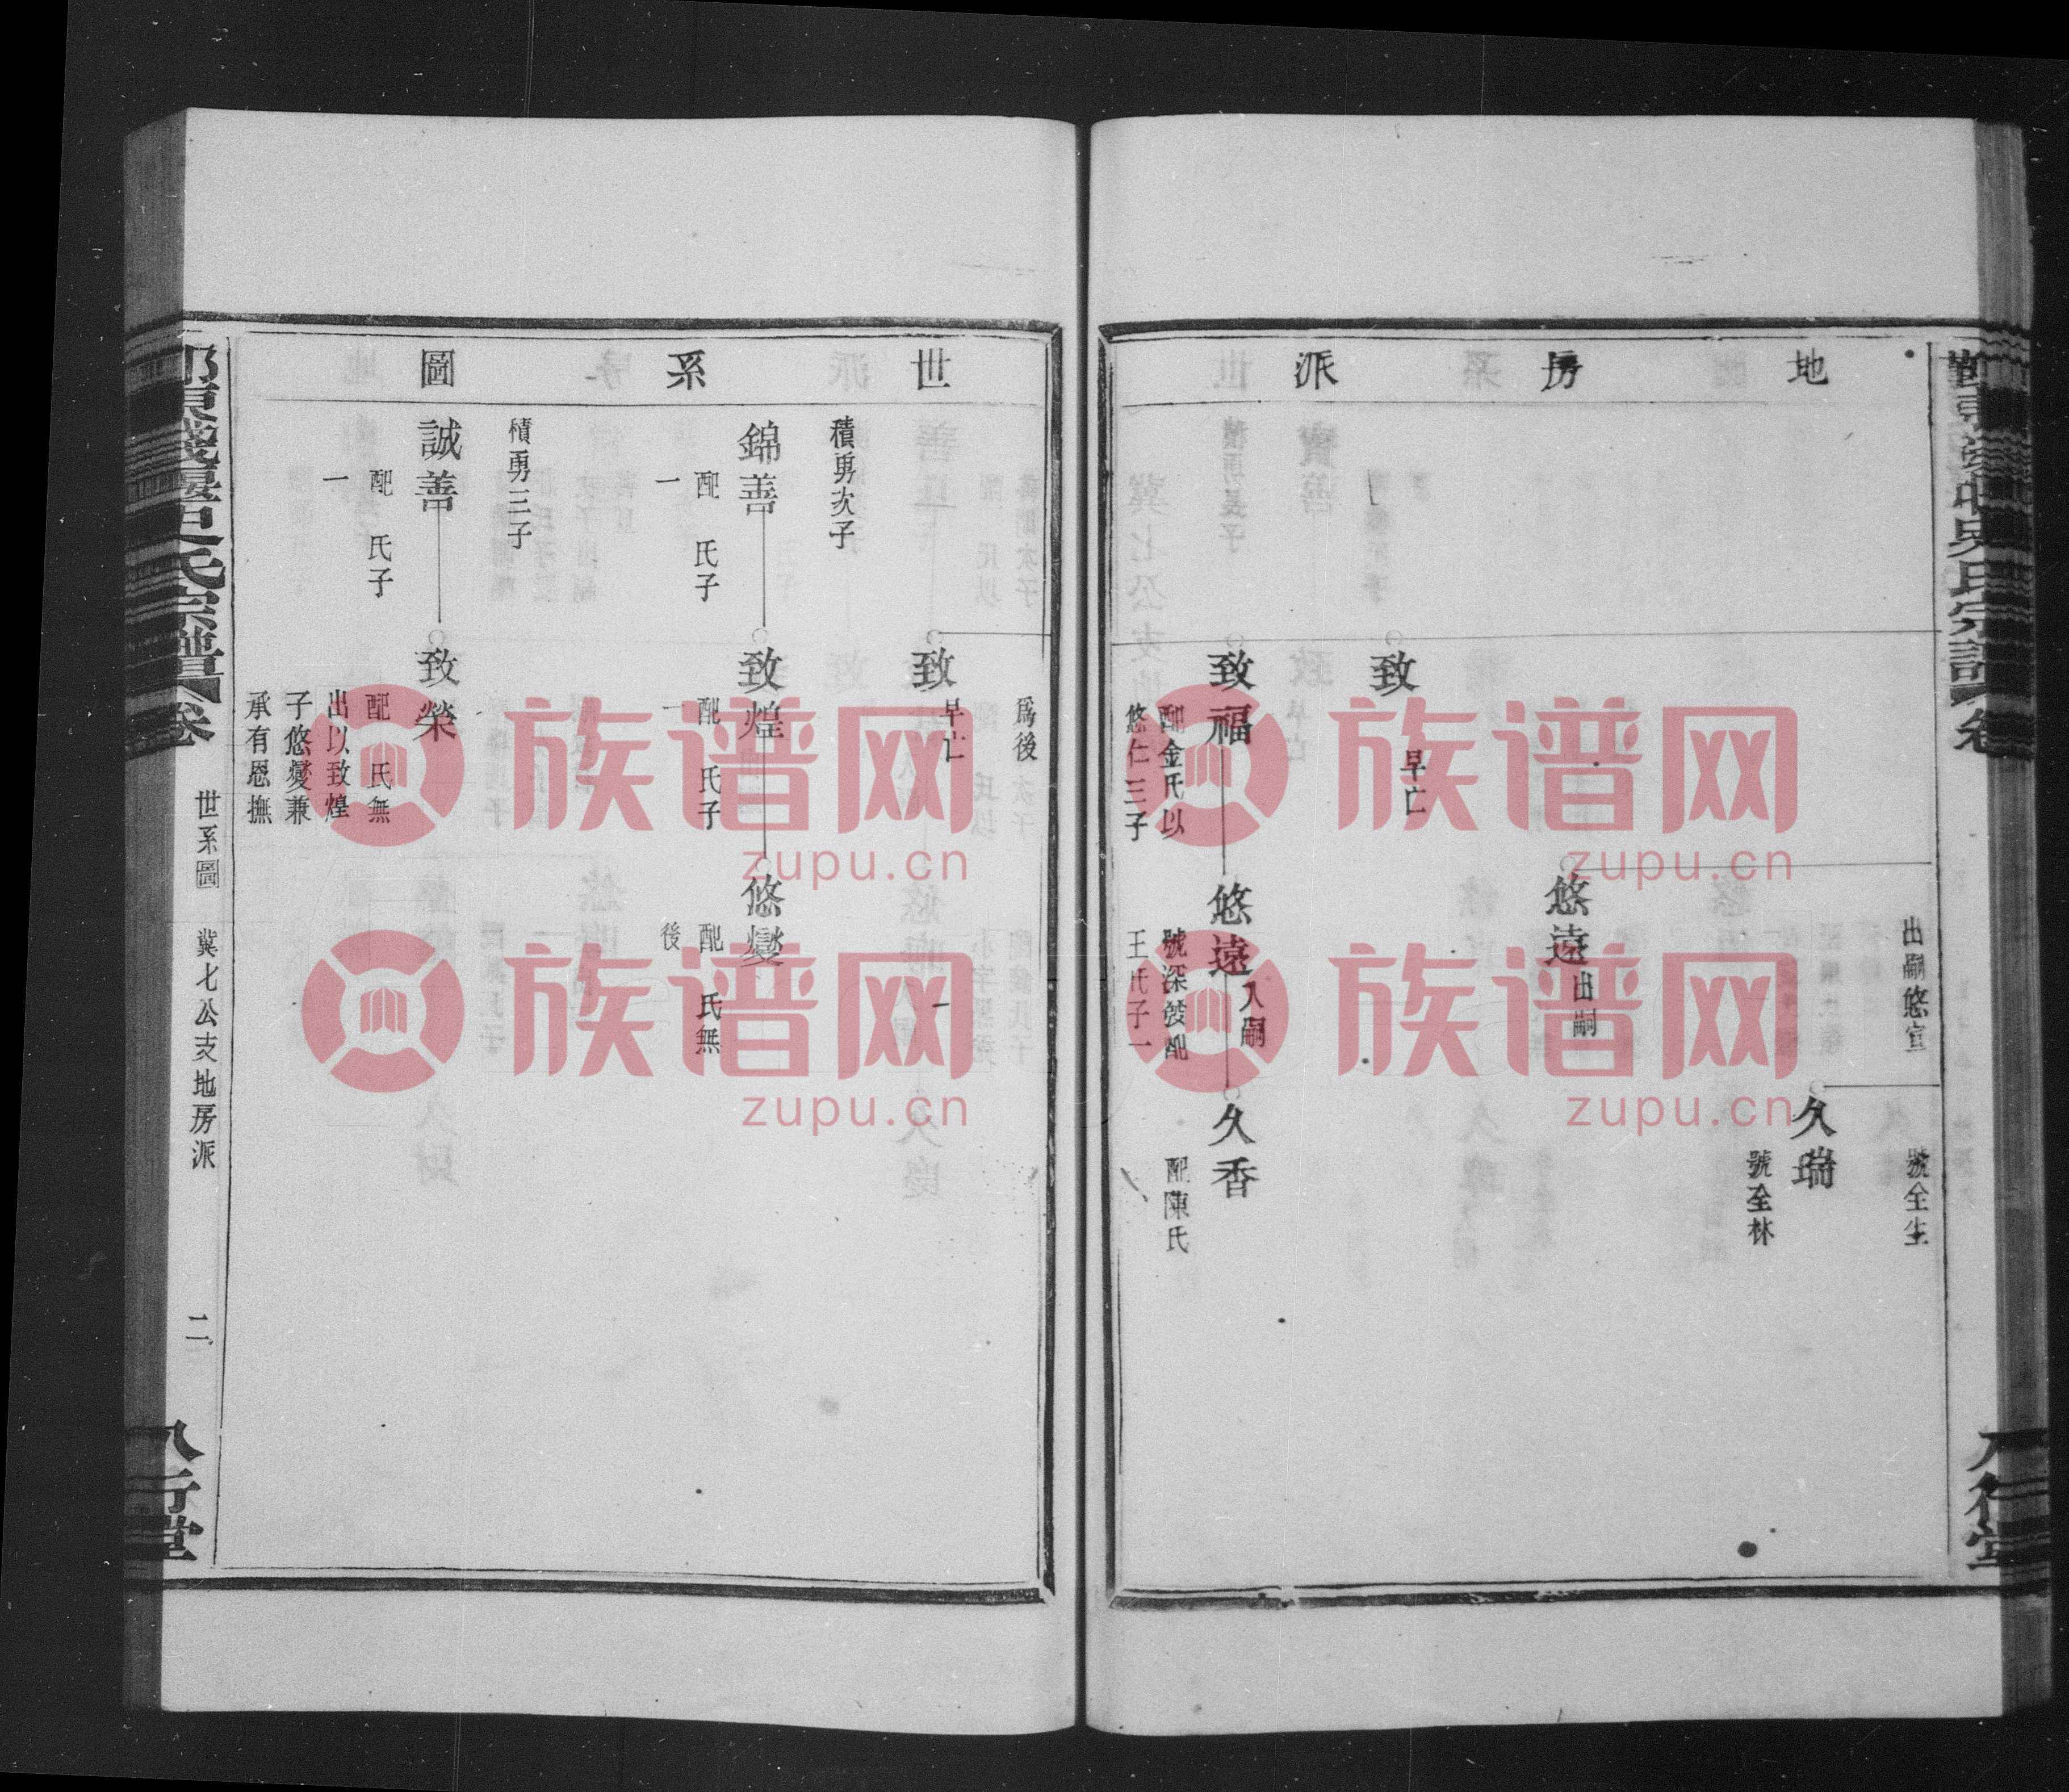 地房派
出嗣悠宣
號全生
久瑞
號全林
悠遠
出嗣
致
早亡
致福
配金氏以
悠仁三子
悠遠
入嗣
號深發配
王氏子一
久香
配陳氏
世系圖
為後
致
早亡
積勇次子
錦善
配 氏子
一
致煌
配 氏子
一
悠燮
配 氏無
後
積勇三子
誠善
配 氏子
一
致榮
配 氏無
出以致煌
子悠燮兼
承有恩撫
史氏宗譜
卷
世系圖
冀七公支地房派
二
八行堂
史氏宗譜
卷
八行堂
族谱网
zupu.cn
族谱网
zupu.cn
族谱网
zupu.cn
族谱网
zupu.cn